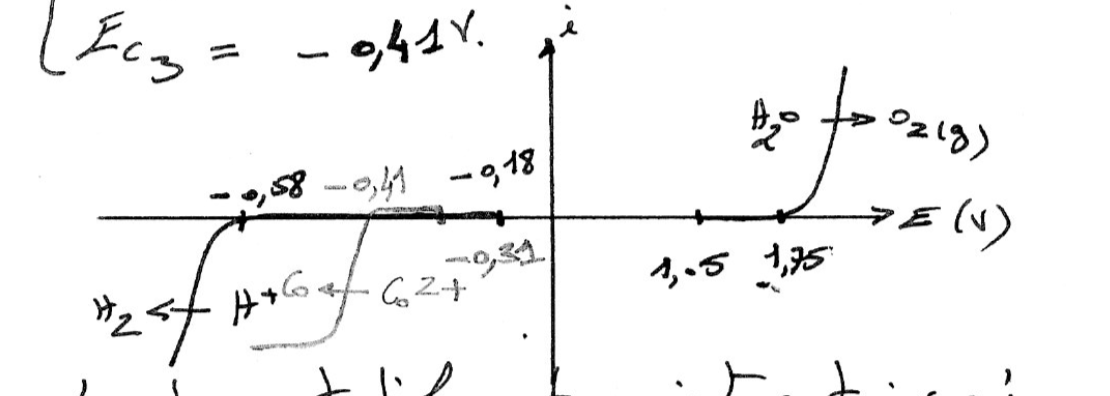 E_C3 = - 0,41 V.
i
H2O → O2(g)
- 0,58
- 0,41
- 0,18
E (V)
- 0,31
1,05
1,75
H2 ← H+
Co ← Co2+